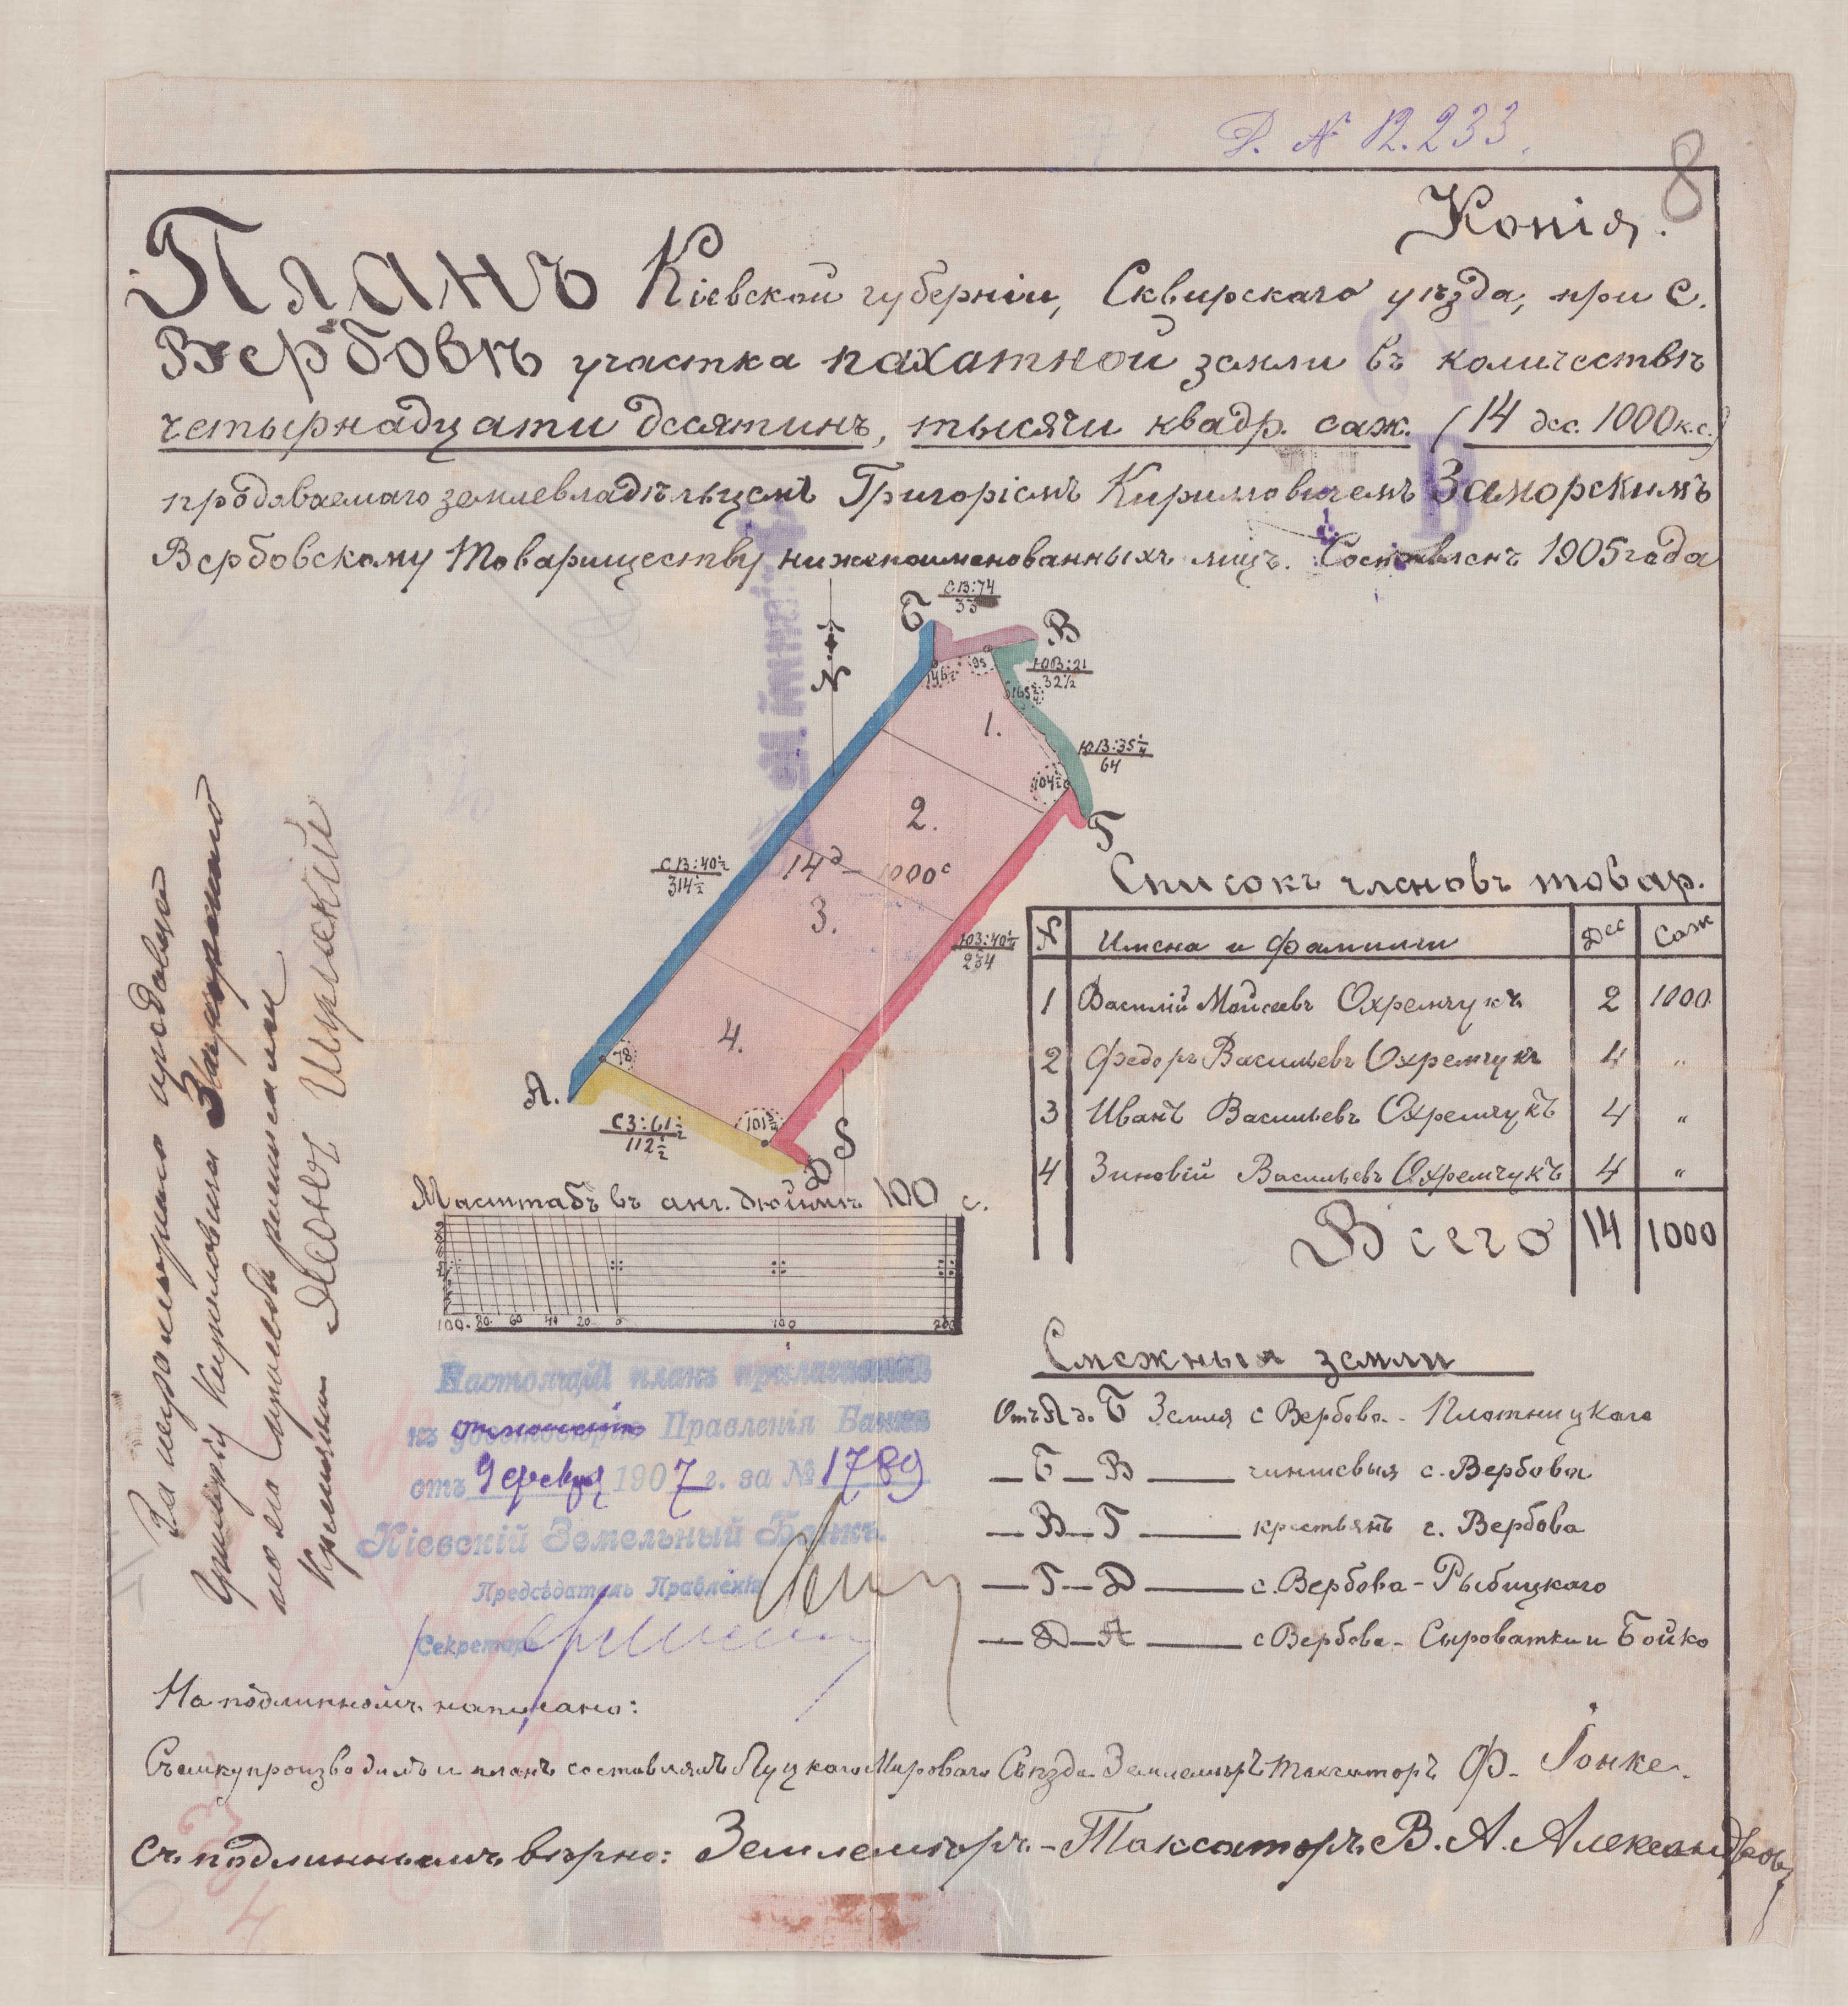 Д. № 12.233.
8
Копія.
Планъ Кіевской губерніи, Сквирскаго уѣзда, при с.
Вербовѣ участка пахатной земли въ количествѣ
четырнадцати десятинъ, тысячи квадр. саж. (14 дес. 1000 к.с.)
продаваемаго землевладѣльцемъ Григоріемъ Кирилловичемъ Заморскимъ
Вербовскому Товариществу нижепоименованныхъ лицъ. Составленъ 1905 года
СВ:74
33
Б
В
N
146½
95
ЮВ:21
32½
165¾
1.
ЮВ:35¼
64
104½
Г
2.
14д – 1000с
СВ:40½
314½
3.
ЮЗ:40½
234
4.
78
А.
СЗ:61½
112½
101¾
Д
S
Списокъ членовъ товар.
N Имена и фамиліи Дес Саж
1 Василій Моисеевъ Охремчукъ 2 1000
2 Федоръ Васильевъ Охремчукъ 4 "
3 Иванъ Васильевъ Охремчукъ 4 "
4 Зиновій Васильевъ Охремчукъ 4 "
Всего 14 1000
Масштабъ въ анг. дюймѣ 100 с.
100. 80. 60 40 20. 0 100 200
Смежныя земли
Отъ А до Б Земля с Вербова - Плотницкаго
— Б — В —— чиншевыя с. Вербова
— В — Г —— крестьянъ с. Вербова
— Г — Д —— с. Вербова - Рыбицкаго
— Д — А —— с Вербова - Сыроватки и Бойко
За неграмотнаго продавца
Григорія Кирилловича Заморскаго
по его просьбѣ
Настоящій планъ прилагается
къ Правленія Банка
отъ 9 февр 1907 г. за № 1789
Кіевскій Земельный Банкъ.
Предсѣдатель Правленія
Секретарь
На подлинномъ написано:
Съемку производилъ и планъ составлялъ Луцкаго Мироваго Съѣзда Землемѣръ Таксаторъ Ф. Гонке.
Съ подлиннымъ вѣрно: Землемѣръ-Таксаторъ В. А. Александров